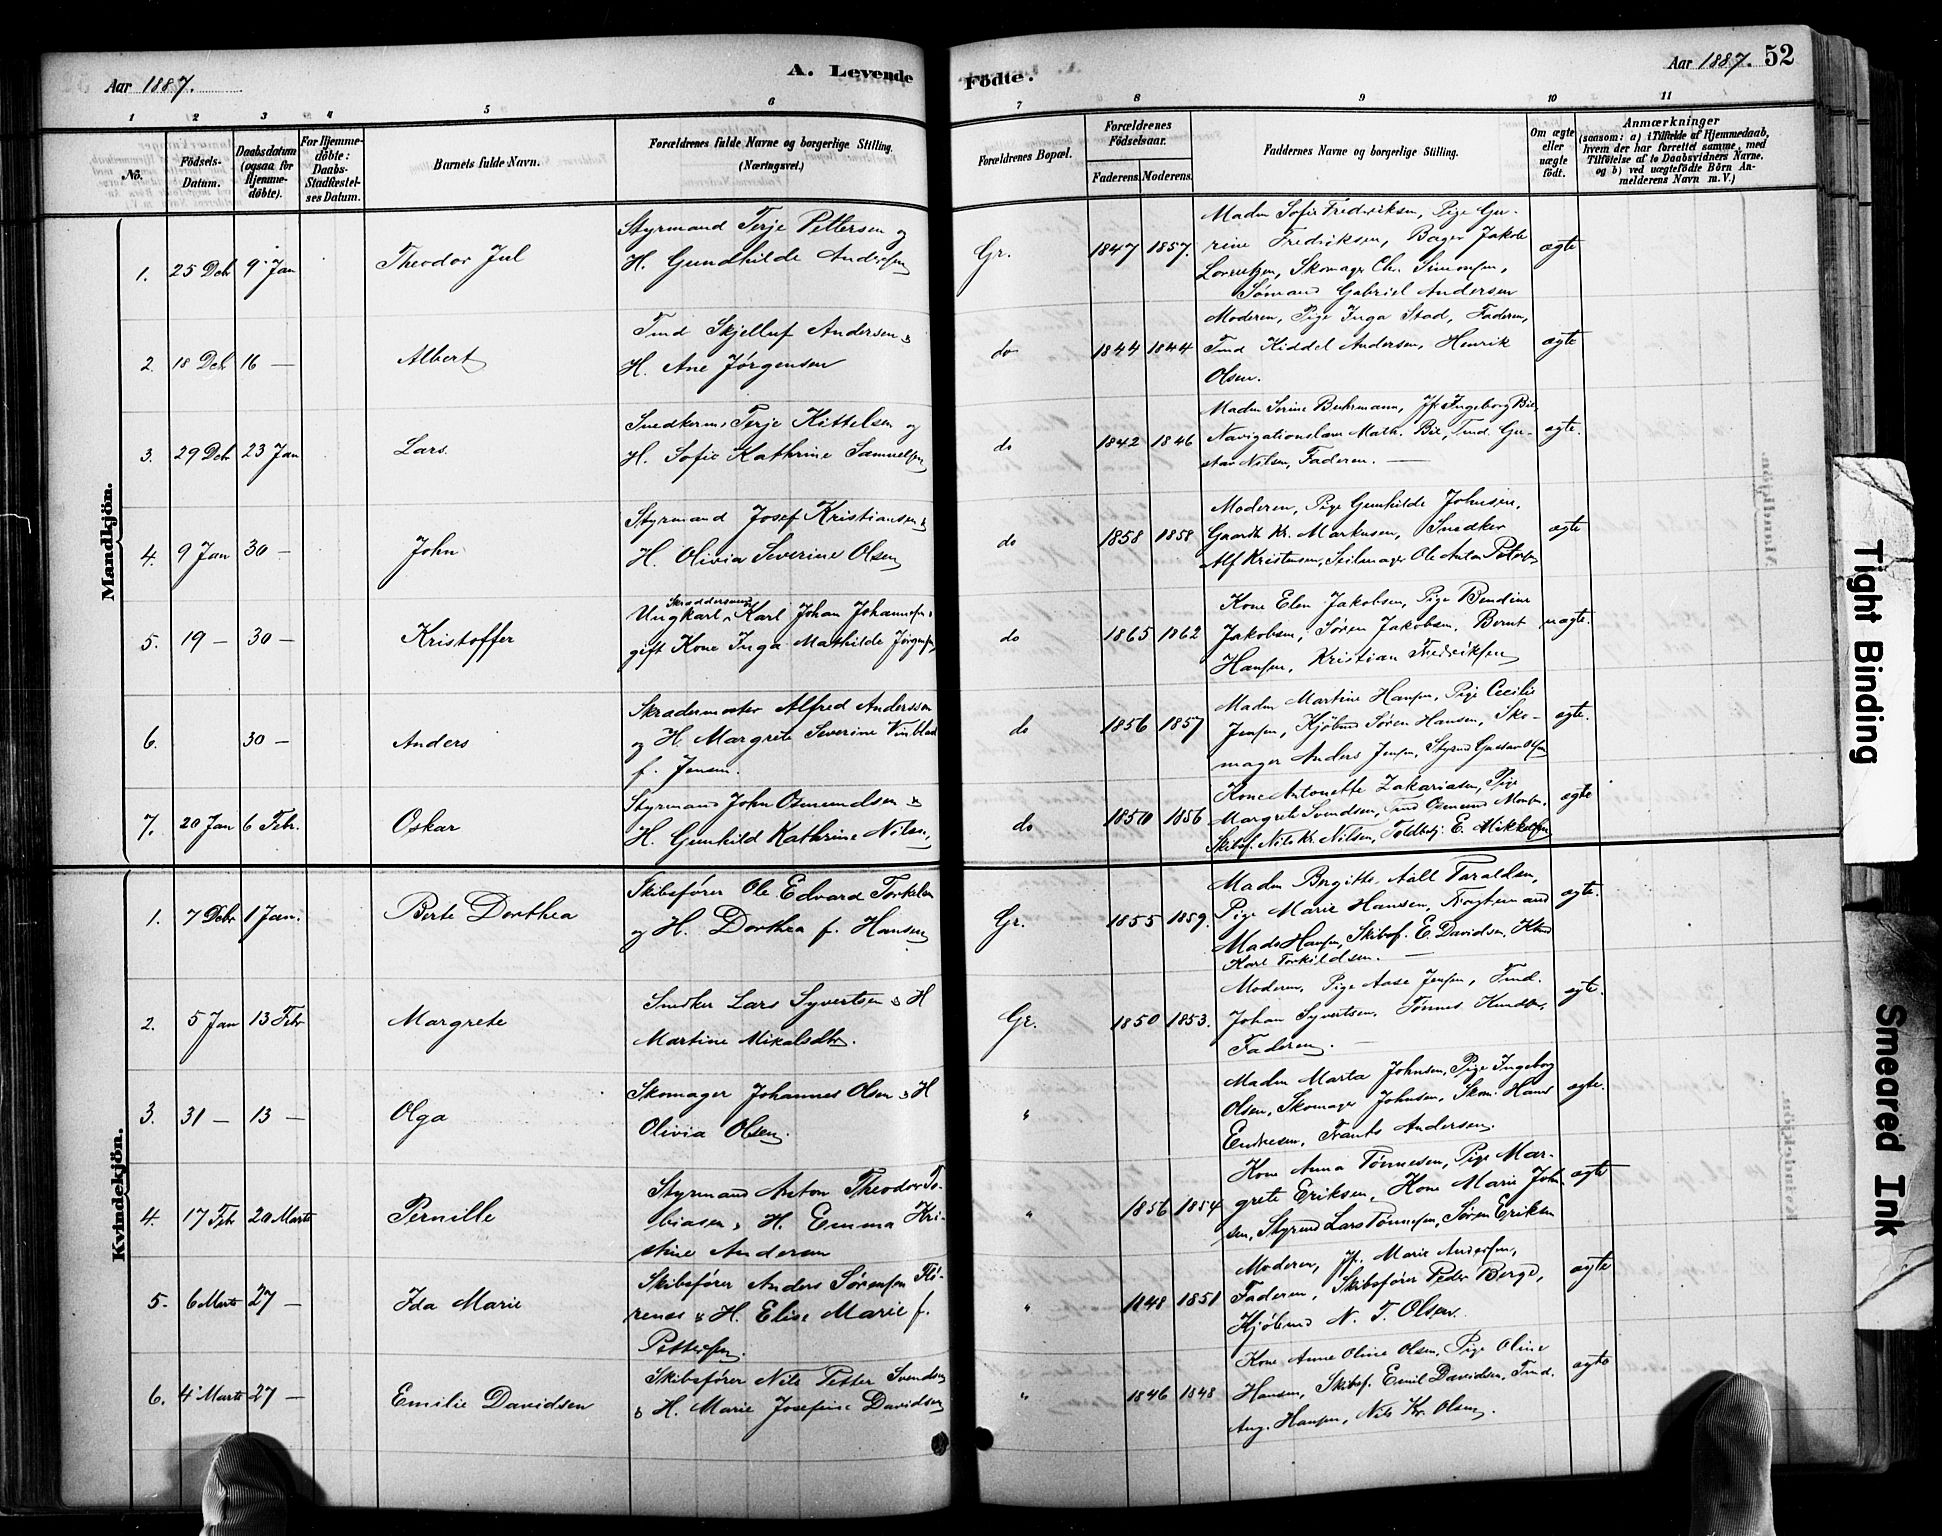 Aar 1887.
A. Levende
Födte.
Aar 1887. 52
1 2 3 4 5 6 7 8 9 10 11
No.
Födsels-Datum.
Daabsdatum (ogsaa for Hjemme-döbte).
For Hjemme-döbte: Daabs-Stadfæstelses Datum.
Barnets fulde Navn.
Forældrenes fulde Navne og borgerlige Stilling.
(Næringsvei.)
Forældrenes Bopæl.
Forældrenes Födselsaar.
Faderens. Moderens.
Faddernes Navne og borgerlige Stilling.
Om ægte eller uægte födt.
Anmærkninger
(saasom: a) i Tilfælde af Hjemmedaab, hvem der har forrettet samme, med Tilföielse af to Daabsvidners Navne. og b) ved uægtefödte Börn Anmelderens Navn m. V.)
Mandkjön.
1. 25 Debr 9 Jan Theodor Jul
Styrmand Terje Pettersen og
H. Gundhilde Andersen
Gr. 1847 1857.
Madm Sofie Fredriksen, Pige Gurine Fredriksen, Bager Jakob
Lorentzen, Skomager Chr. Simonsen,
Sömand Gabriel Andersen
ægte
2. 18 Debr 16 — Albert
Tmd Skjelluf Andersen &
H. Ane Jörgensen
do 1844 1844
Moderen, Pige Inga Stad, Faderen,
Tmd Kiddel Andersen, Henrik
Olsen.
ægte
3. 29 Debr 23 Jan Lars.
Snedkerm. Terje Kittelsen og
H. Sofie Kathrine Samuelsen
do 1842 1846
Madm Serine Buhrmann, Jfr Ingeborg Bie,
Navigationslærer Math. Bie, Tmd. Gustav Nilsen, Faderen. —
ægte.
4. 9 Jan 30 — John
Styrmand Josef Kristiansen &
H. Olivia Severine Olsen
do 1858 1858
Moderen, Pige Gunhilde Johnsen,
Gaardb. Kr. Markusen, Snedker
Alf Kristensen, Seilmager Ole Anton Petersen
ægte
5. 19 — 30 — Kristoffer
Skræddersvend
Ungkarl Karl Johan Johannesen &
gift Kone Inga Mathilde Jörgensen
do 1865 1862
Kone Elen Jakobsen, Pige Bendine
Jakobsen, Sören Jakobsen, Bernt
Hansen, Kristian Fredriksen
uægte.
6. 30 — Anders
Skrædermester Alfred Anderssen
og H. Margrete Severine Vinblad
f. Jensen.
do 1856 1857
Madm Martine Hansen, Pige Cecilie
Jensen, Kjöbmd Sören Hansen, Skomager Anders Jensen, Styrmd Gustav Olsen
ægte.
7. 20 Jan 6 Febr. Oskar
Styrmand John Osmundsen &
H. Gunhild Kathrine Nilsen
do 1850 1856
Kone Antonette Zakariasen, Pige
Margrete Svendsen, Tmd Osmund Monsen,
Skibsf. Nils Kr. Nilsen, Toldbetj. E. Mikkelsen
ægte
Kvindekjön.
1. 7 Debr 1 Jan. Berte Dorthea
Skibsförer Ole Edvard Torkelsen
og H. Dorthea f. Hansen
Gr. 1855 1859.
Madm Bergitte Aall Taraldsen,
Pige Marie Hansen,
Mads Hansen, Skibsf. E. Davidsen,
Karl Torkildsen. —
ægte.
2. 5 Jan 13 Febr Margrete
Snedker Lars Syvertsen & H
Martine Mikalsdtr.
Gr. 1850 1853.
Moderen, Pige Aase Jensen, Tmd.
Johan Syvertsen, Tönnes Knudsen,
Faderen. —
ægte.
3. 31 — 13 — Olga
Skomager Johannes Olsen & H
Olivia Olsen.
"
Madm Marta Johnsen, Pige Ingeborg
Olsen, Skomager Johnsen, Skom. Hans
Endresen, Frants Andersen.
ægte.
4. 17 Feb 20 Marts Pernille
Styrmand Anton Theodor Tobiasen & H. Emma Kristine Andersen
" 1856 1854
Kone Anna Tönnesen, Pige Margrete Eriksen, Kone Marie Johnsen, Styrmd Lars Tönnesen, Sören Eriksen
ægte
5. 6 Marts 27 — Ida Marie
Skibsförer Anders Sörensen Flörenes & H. Elise Marie f.
Pettersen.
" 1848 1851
Moderen, Jfr. Marie Andersen,
Faderen, Skibsförer Peder Berge,
Kjöbmd N. T. Olsen.
ægte
6. 4 Marts 27 — Emilie Davidsen
Skibsförer Nils Petter Svendsen
& H. Marie Josefine Davidsen
" 1846 1848
Kone Anne Oline Olsen, Pige Oline
Hansen, Skibsf. Emil Davidsen, Tmd.
Aug. Hansen, Nils Kr. Olsen.
ægte
Tight Binding
Smeared Ink